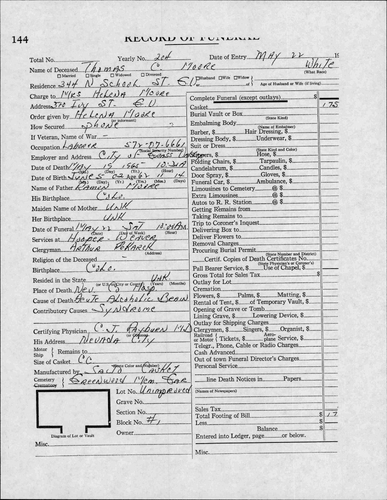 144
RECORD OF FUNERAL
Total No. Yearly No. 202 Date of Entry May 22
Name of Deceased Thomas C. Moore White
Married Single Widowed Divorced (What Race)
Residence 344 N School St. G.V. Husband Wife Widow Age of Husband or Wife (if living)
Charge to Mrs Helena Moore
Address 370 Ivy St. G.V.
Order given by Helena Moore
How Secured Phone
If Veteran, Name of War -
Occupation Laborer 572-07-6661
Employer and Address City of Grass Valley
Date of Death May 19 1965 10:30
Date of Birth
Name of Father Moore
His Birthplace Colo
Maiden Name of Mother Unk
Her Birthplace Unk
Date of Funeral May 22 Sat 10:00 AM
Services at Hooper-Weaver
Clergyman Arthur
Religion of the Deceased
Birthplace Colo.
Resided in the State Unk
Place of Death Nev. Co Hosp
Cause of Death Acute Alcoholic Brain
Contributory Causes Syndrome
Certifying Physician C. J. Rayburn MD
His Address Nevada City
Motor Ship Remains to
Size of Casket
Manufactured by Casket
Cemetery Crematory Greenwood Mem. Gar
Lot No. Unimproved
Grave No.
Section No.
Block No. #1
Owner
Diagram of Lot or Vault
Misc.
Complete Funeral (except outlays) $
Casket 175
Burial Vault or Box
(State Kind)
Embalming Body
Barber, $ Hair Dressing, $
Dressing Body, $ Underwear, $
Suit or Dress
Slippers, $ Hose, $
Folding Chairs, $ Tarpaulin, $
Candelabrum, $ Candles, $
Door Spray, $ Gloves, $
Funeral Car, $ Ambulance, $
Limousines to Cemetery @ $
Extra Limousines @ $
Autos to R. R. Station @ $
Getting Remains from
Taking Remains to
Trip to Coroner's Inquest
Delivering Box to
Deliver Flowers to
Removal Charges
Procuring Burial Permit
Certif. Copies of Death Certificate
Pall Bearer Service, $ Use of Chapel, $
Gross Total for Sales Tax $
Outlay for Lot
Cremation
Flowers, $ Palms, $ Matting, $
Rental of Tent, $ of Temporary Vault, $
Opening of Grave or Tomb
Lining Grave, $ Lowering Device, $
Outlay for Shipping Charges
Clergyman, $ Singers, $ Organist, $
Railroad or Motor Tickets, $ Aeroplane Service, $
Telegr., Phone, Cable or Radio Charges
Cash Advanced
Out of town Funeral Director's Charges
Personal Service
line Death Notices in Papers
(Names of Newspapers)
Sales Tax $
Total Footing of Bill $ 17
Less
Balance $
Entered into Ledger, page or below.
Misc.